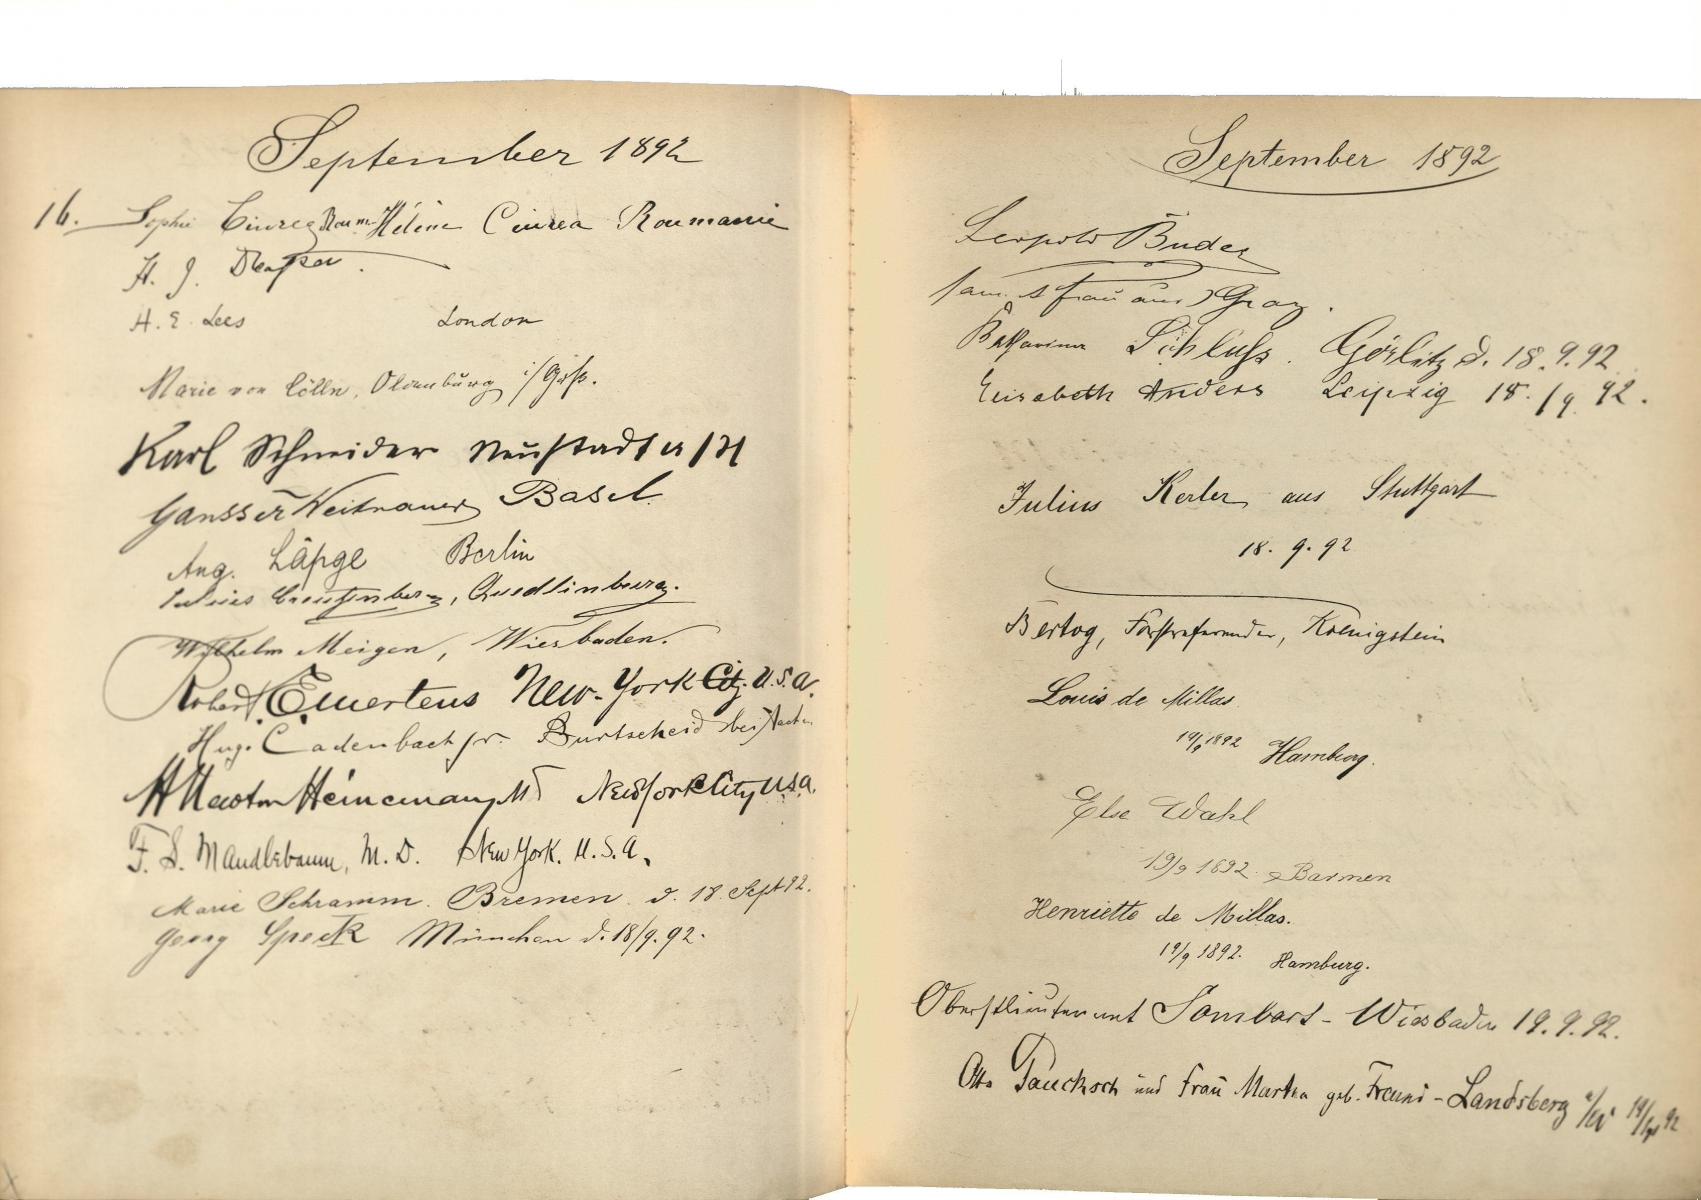 September 1892
16. Sophie Ciurea Roum. Hélène Ciurea Roumanie
H. J.
H. E. Lees London
Marie von Cölln, Oldenburg i/Gßh.
Karl Schneider Neustadt a/H
Gansser Weitnauer Basel
Aug. Läpge Berlin
Julius Creutzenberg, Quedlinburg.
Wilhelm Meigen, Wiesbaden.
Robert E. Mertens New-York City U.S.A.
Hugo Cadenbach jr. Burtscheid bei Aachen
H Newton Heineman MD New York City U.S.A.
F. S. Mandlebaum, M. D. New York. U. S. A.
Marie Schramm. Bremen. d. 18. Sept 92.
Georg Speck München d. 18/9. 92.
September 1892
Leopold Buder
sammt Frau aus Graz.
Katharina Schluß. Görlitz d. 18. 9. 92.
Elisabeth Anders Leipzig 18./9. 92.
Julius Kerler aus Stuttgart
18. 9. 92
Bertog, Forstreferendar, Koenigstein
Louis de Millas.
19/9 1892 Hamburg.
Else Wahl
19/9 1892. Barmen
Henriette de Millas.
19/9 1892. Hamburg.
Oberstlieutenant Sombart - Wiesbaden 19. 9. 92.
Otto Paucksch und Frau Martha geb. - Landsberg a/W 19/9 92